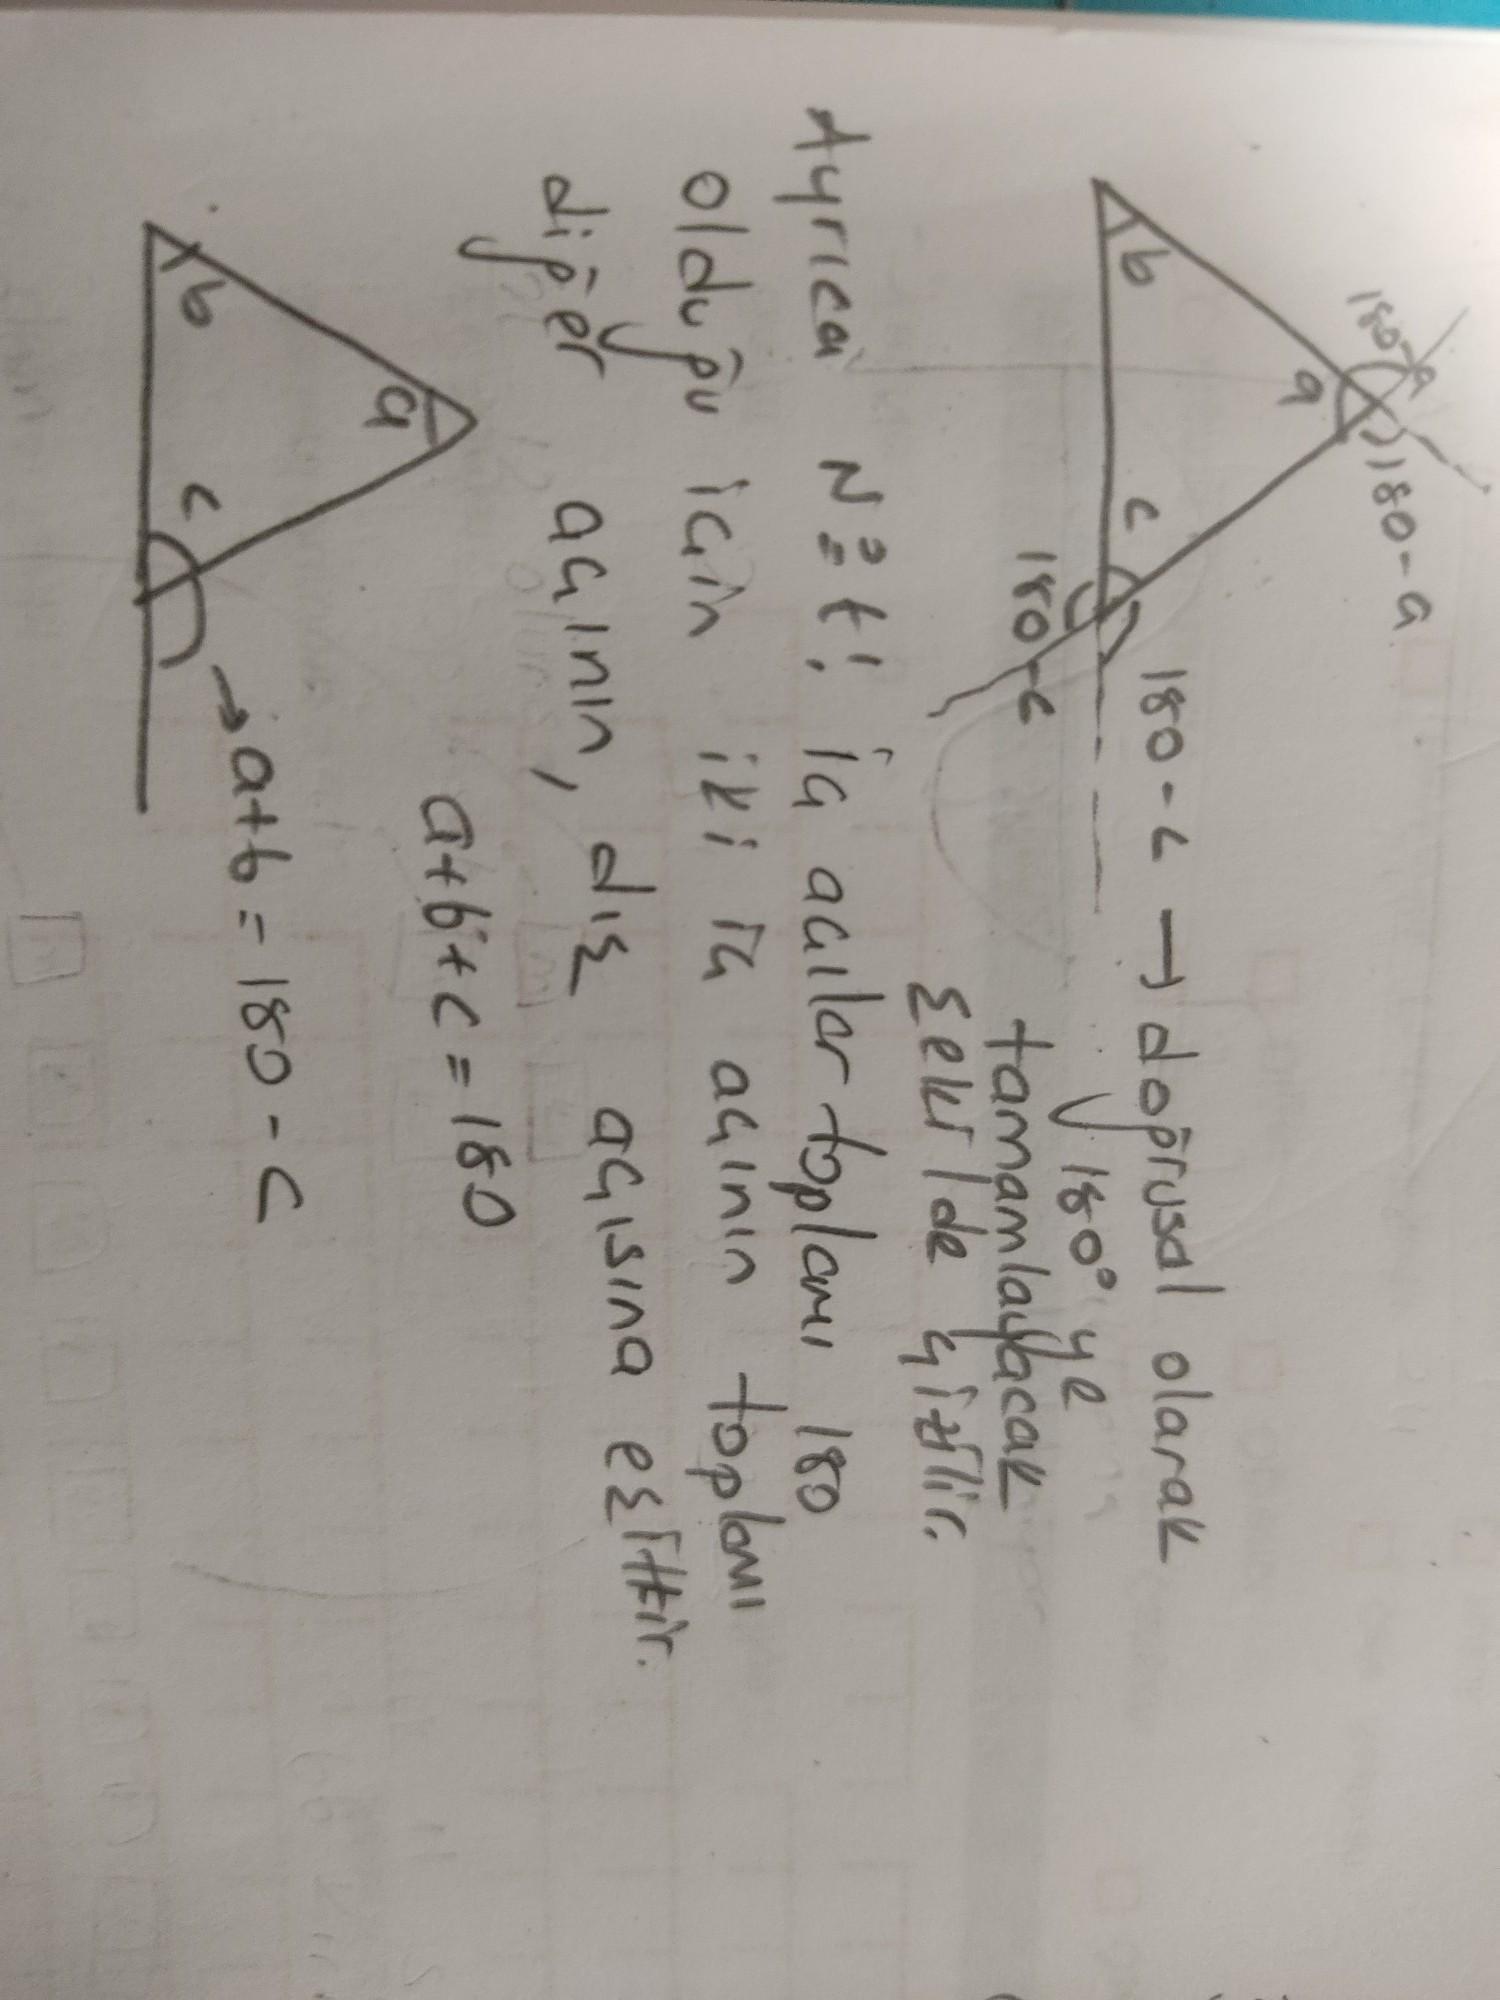 180-a
180-a
a
b
c
180-c → doğrusal olarak
180-c
180° ye
tamamlayacak
şekilde çizilir.
Ayrıca Not! iç açılar toplamı 180
olduğu için iki iç açının toplamı
diğer açının, dış açısına eşittir.
a+b+c = 180
a
b
c
→ a+b = 180-c